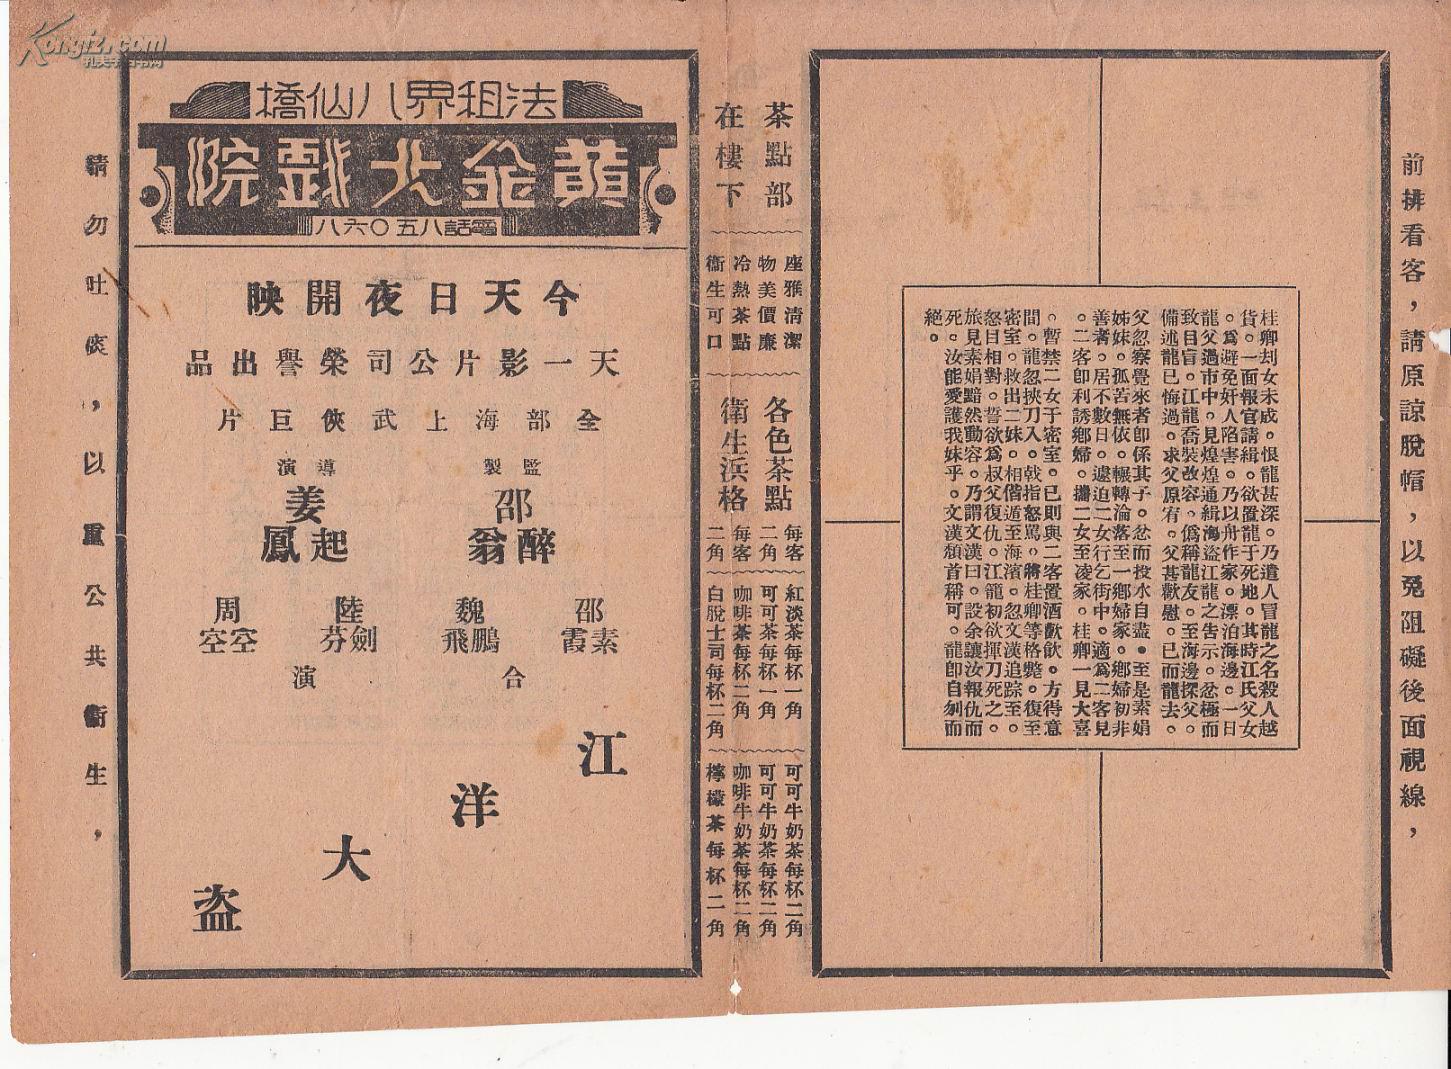 前排看客，請原諒脫帽，以免阻礙後面視線，
桂卿刦女未成。恨龍甚深。乃遣人冒龍之名殺人越
貨。一面報官請緝。欲置龍于死地。其時江氏父女
。爲避免奸人陷害。乃以舟作家。漂泊海邊。一日
龍父過市中。見煌煌通緝海盜江龍之告示。忿極而
致目盲。江龍喬裝改容。僞稱龍友。至海邊探父。
備述龍已悔過。求父原宥。父甚歡慰。已而龍去。
父忽察覺來者卽係其子。忿而投水自盡。至是素娟
姊妹。孤苦無依。輾轉淪落至一鄉婦家。鄉婦初非
善者。居不數日。遽迫二女行乞街中。適爲二客見
。二客卽利誘鄉婦。攜二女至凌家。桂卿一見大喜
。暫禁二女于密室。已則與二客置酒歡飲。方得意
間。龍忽挾刀入。戟指怒罵。將桂卿等格斃。復至
密室。救出二妹。相偕遁至海濱。忽文漢追踪至。
怒目相對。誓欲爲叔父復仇。江龍初欲揮刀死之。
旅見素娟黯然動容。乃謂文漢曰。設余讓汝報仇而
死。汝能愛護我妹乎。文漢頷首稱可。龍卽自刎而
絕。
茶點部
在樓下
座雅清潔
物美價廉
冷熱茶點
衞生可口
各色茶點
每客二角
衛生浜格
每客二角
紅淡茶每杯一角
可可茶每杯一角
咖啡茶每杯二角
白脫士司每杯二角
可可牛奶茶每杯二角
可可牛奶茶每杯二角
咖啡牛奶茶每杯二角
檸檬茶每杯二角
法租界八仙橋
黃金大戲院
電話八五〇六八
今天日夜開映
天一影片公司榮譽出品
全部海上武俠巨片
監製
邵醉翁
導演
姜起鳳
邵素霞
魏鵬飛
陸劍芬
周空空
合演
江洋大盜
請勿吐痰，以重公共衞生，
Kongfz.com
孔夫子旧书网